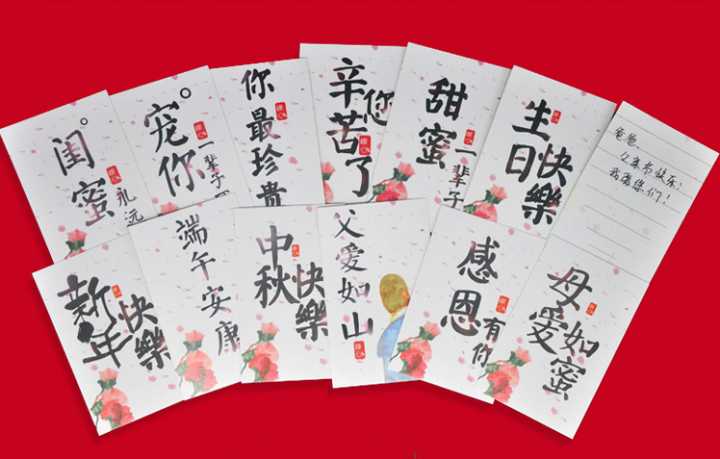 闺蜜
永远
宠你
一辈子
你最珍贵
辛苦了
您
甜蜜
一辈子
生日
快樂
爸爸,
父亲节快乐!
我爱你们!
新年
快樂
端午安康
中秋
快樂
父爱如山
感恩
有你
母爱
如蜜